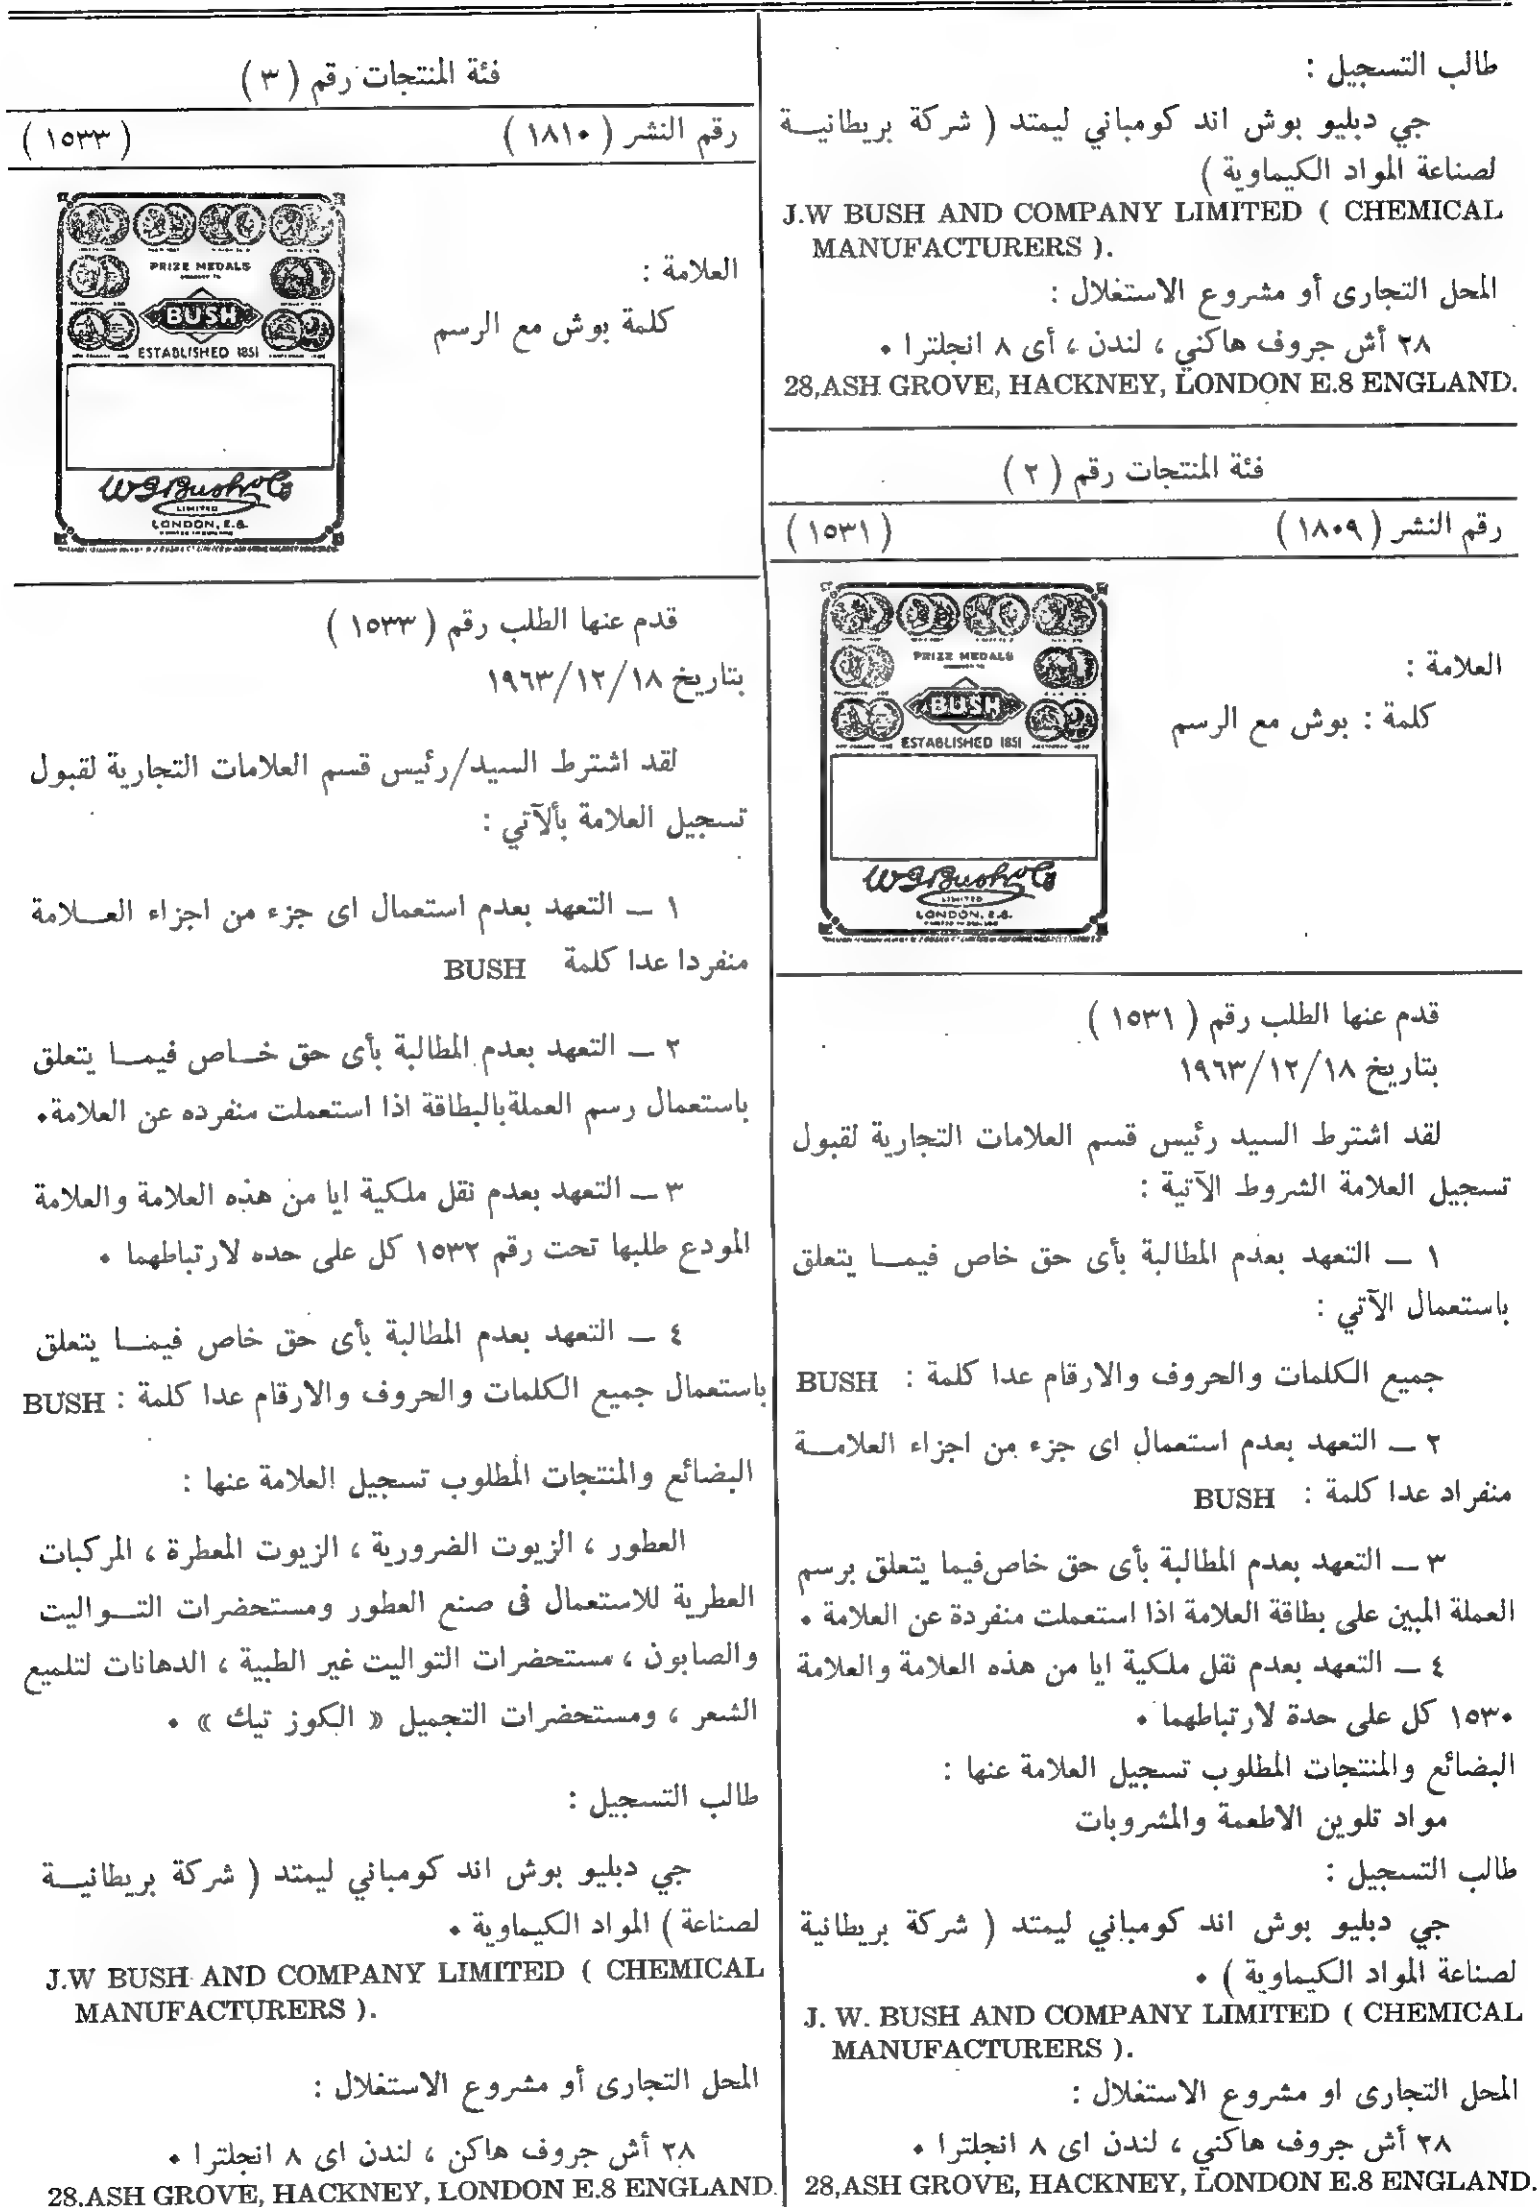 طالب التسجيل :
جي دبليو بوش اند كومباني ليمتد ( شركة بريطانيـــة
لصناعة المواد الكيماوية )
J.W BUSH AND COMPANY LIMITED ( CHEMICAL
MANUFACTURERS ).
المحل التجارى أو مشروع الاستغلال :
٢٨ أش جروف هاكني ، لندن ، أى ٨ انجلترا ٠
28,ASH GROVE, HACKNEY, LONDON E.8 ENGLAND.
فئة المنتجات رقم ( ٢ )
رقم النشر ( ١٨٠٩ ) ( ١٥٣١ )
PRIZE MEDALS
BUSH
ESTABLISHED 1851
LIMITED
LONDON, E.8.
العلامة :
كلمة : بوش مع الرسم
قدم عنها الطلب رقم ( ١٥٣١ )
بتاريخ ١٩٦٣/١٢/١٨
لقد اشترط السيد رئيس قسم العلامات التجارية لقبول
تسجيل العلامة الشروط الآتية :
١ ــ التعهد بعدم المطالبة بأى حق خاص فيمـــا يتعلق
باستعمال الآتي :
جميع الكلمات والحروف والارقام عدا كلمة : BUSH
٢ ــ التعهد بعدم استعمال اى جزء من اجزاء العلامـــة
منفراد عدا كلمة : BUSH
٣ ــ التعهد بعدم المطالبة بأى حق خاص فيما يتعلق برسم
العملة المبين على بطاقة العلامة اذا استعملت منفردة عن العلامة ٠
٤ ــ التعهد بعدم نقل ملكية ايا من هذه العلامة والعلامة
١٥٣٠ كل على حدة لارتباطهما ٠
البضائع والمنتجات المطلوب تسجيل العلامة عنها :
مواد تلوين الاطعمة والمشروبات
طالب التسجيل :
جي دبليو بوش اند كومباني ليمتد ( شركة بريطانية
لصناعة المواد الكيماوية ) ٠
J. W. BUSH AND COMPANY LIMITED ( CHEMICAL
MANUFACTURERS ).
المحل التجارى او مشروع الاستغلال :
٢٨ أش جروف هاكني ، لندن اى ٨ انجلترا ٠
28,ASH GROVE, HACKNEY, LONDON E.8 ENGLAND.
فئة المنتجات رقم ( ٣ )
رقم النشر ( ١٨١٠ ) ( ١٥٣٣ )
PRIZE MEDALS
BUSH
ESTABLISHED 1851
LIMITED
LONDON, E.8.
العلامة :
كلمة بوش مع الرسم
قدم عنها الطلب رقم ( ١٥٣٣ )
بتاريخ ١٩٦٣/١٢/١٨
لقد اشترط السيد/رئيس قسم العلامات التجارية لقبول
تسجيل العلامة بألآتي :
١ ــ التعهد بعدم استعمال اى جزء من اجزاء العـــلامة
منفردا عدا كلمة BUSH
٢ ــ التعهد بعدم المطالبة بأى حق خـــاص فيمـــا يتعلق
باستعمال رسم العملة بالبطاقة اذا استعملت منفرده عن العلامة٠
٣ ــ التعهد بعدم نقل ملكية ايا من هذه العلامة والعلامة
المودع طلبها تحت رقم ١٥٣٢ كل على حده لارتباطهما ٠
٤ ــ التعهد بعدم المطالبة بأى حق خاص فيمـــا يتعلق
باستعمال جميع الكلمات والحروف والارقام عدا كلمة : BUSH
البضائع والمنتجات المطلوب تسجيل العلامة عنها :
العطور ، الزيوت الضرورية ، الزيوت المعطرة ، المركبات
العطرية للاستعمال فى صنع العطور ومستحضرات التـــواليت
والصابون ، مستحضرات التواليت غير الطبية ، الدهانات لتلميع
الشعر ، ومستحضرات التجميل « الكوز تيك » ٠
طالب التسجيل :
جي دبليو بوش اند كومباني ليمتد ( شركة بريطانيـــة
لصناعة ) المواد الكيماوية ٠
J.W BUSH AND COMPANY LIMITED ( CHEMICAL
MANUFACTURERS ).
المحل التجارى أو مشروع الاستغلال :
٢٨ أش جروف هاكن ، لندن اى ٨ انجلترا ٠
28.ASH GROVE, HACKNEY, LONDON E.8 ENGLAND.